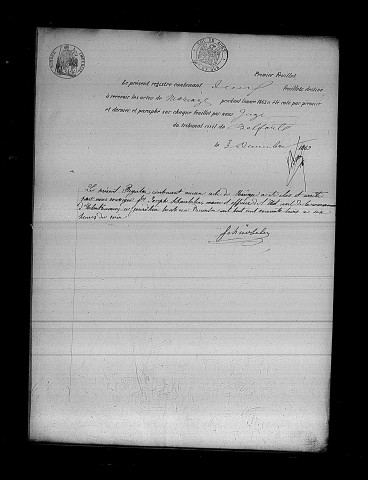 Premier Feuillet.
Le présent registre contenant Deux feuillets destiné
à recevoir les actes de Mariage pendant l'année 1863 a été coté par premier
et dernier et paraphé sur chaque feuillet par nous Juge
du tribunal civil de Belfort
le 3 Décembre 1862
Le présent Registre contenant aucun acte de Mariage a été clos et arrêté
par nous soussigné Joseph maire et officier de l'Etat civil de la commune
ce jourd'hui trente un Décembre mil huit cent soixante trois à six
heures du soir